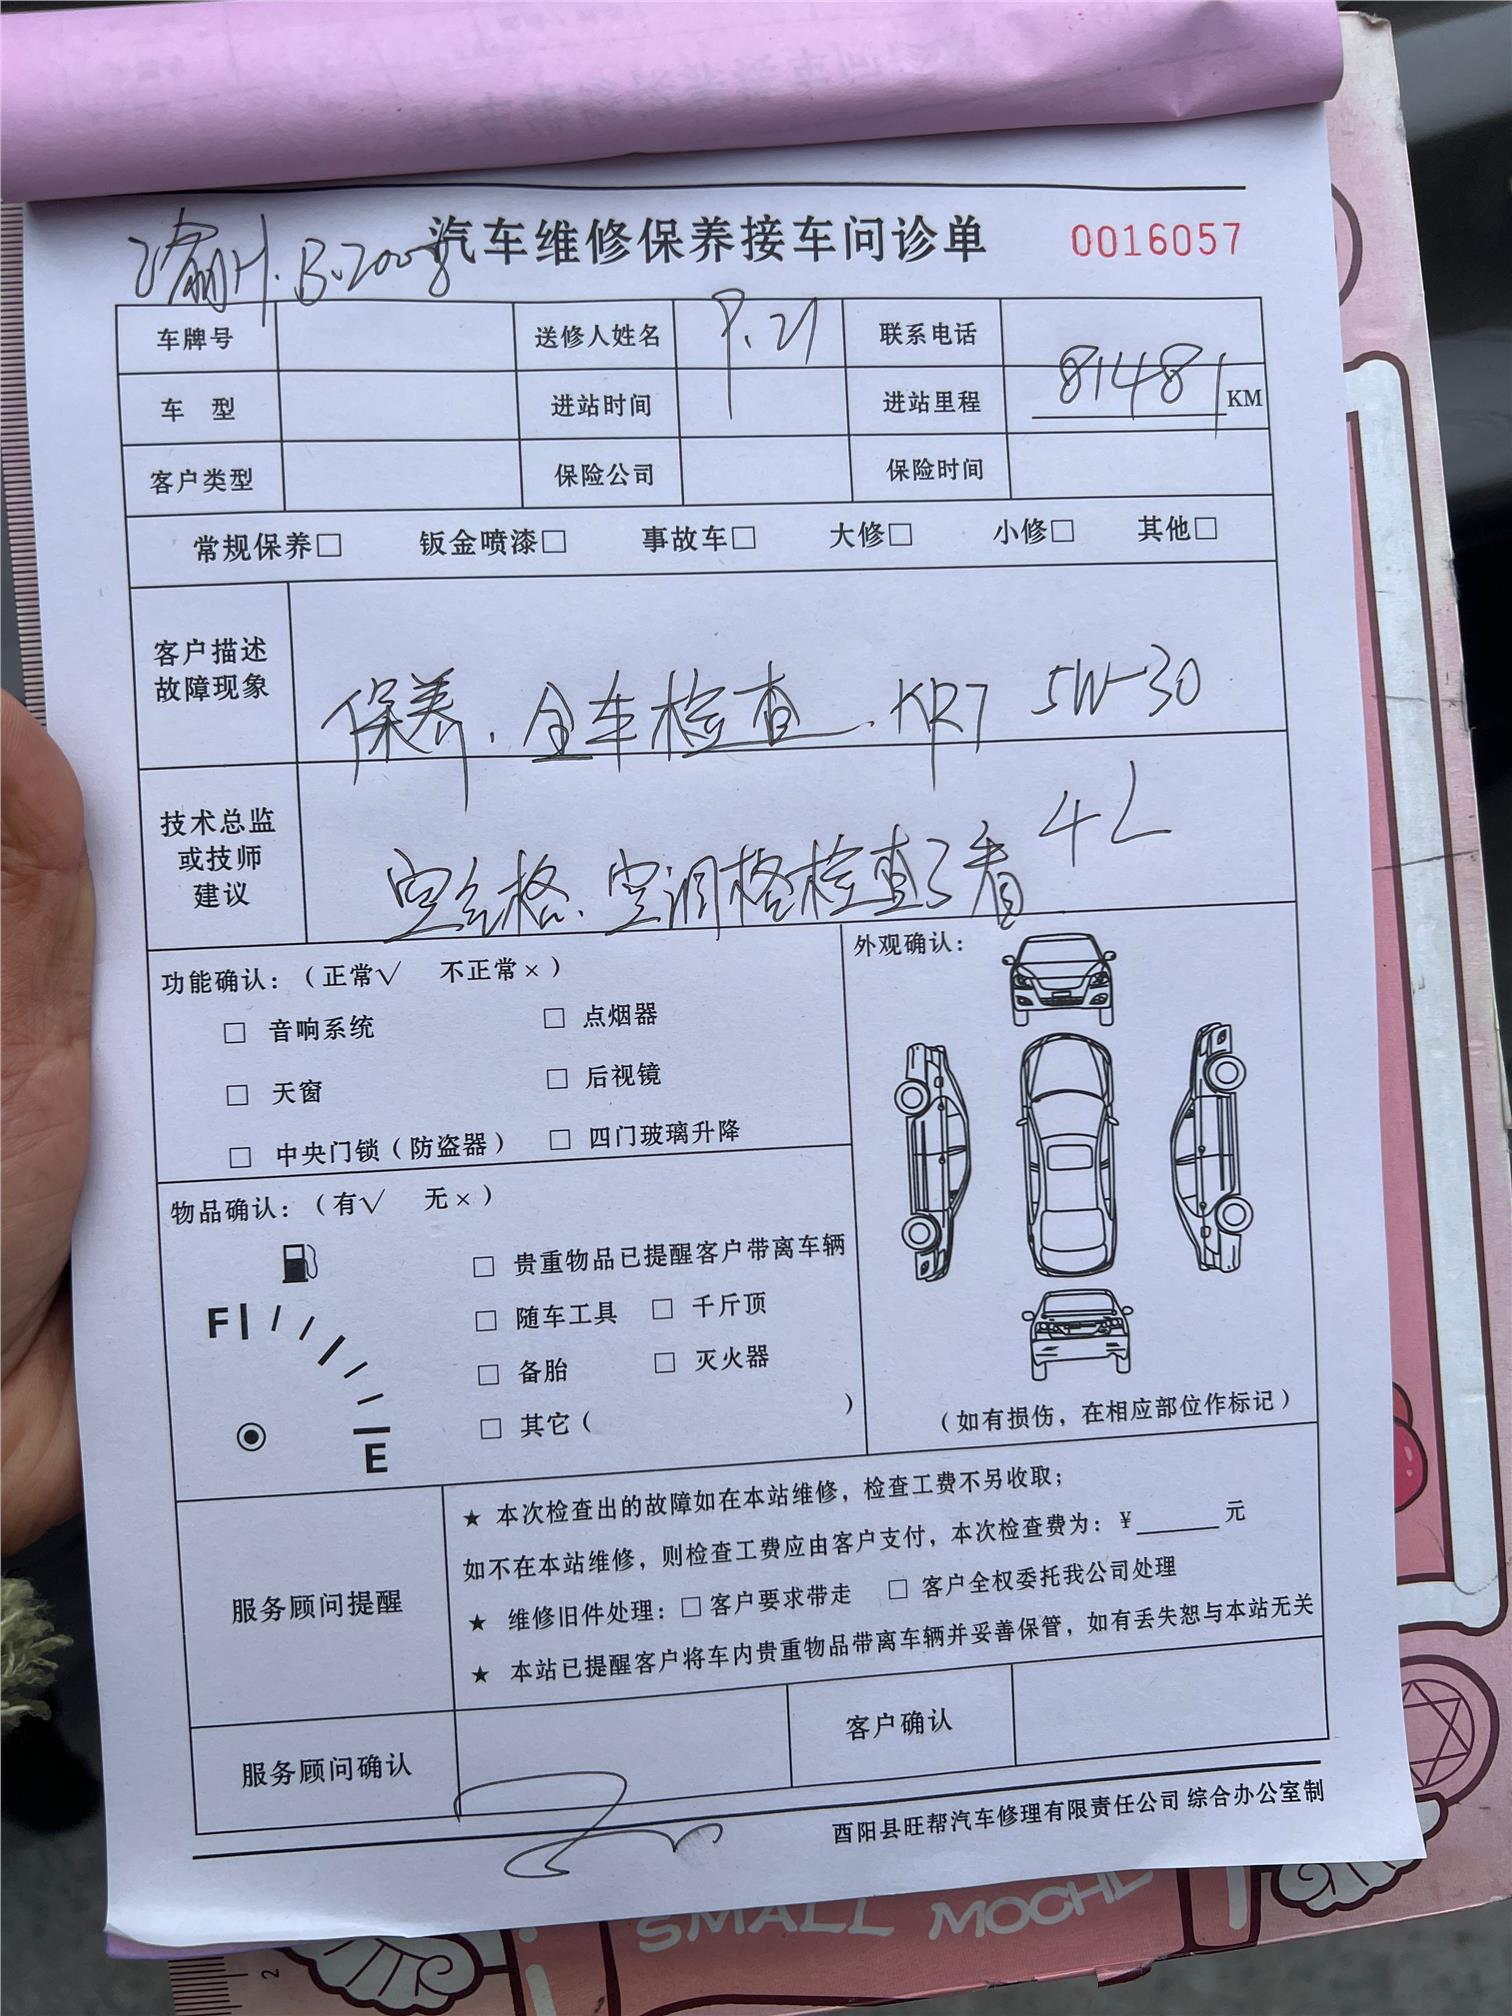 汽车维修保养接车问诊单 0016057
渝H·B·2008
车牌号 送修人姓名 9.21 联系电话
车 型 进站时间 进站里程 81481 KM
客户类型 保险公司 保险时间
常规保养□ 钣金喷漆□ 事故车□ 大修□ 小修□ 其他□
客户描述
故障现象
保养、全车检查、KR7 5W-30
4L
技术总监
或技师
建议
空气格、空调格检查了看
功能确认：（正常√ 不正常×）
□ 音响系统 □ 点烟器
□ 天窗 □ 后视镜
□ 中央门锁（防盗器） □ 四门玻璃升降
外观确认：
（如有损伤，在相应部位作标记）
物品确认：（有√ 无×）
F
E
□ 贵重物品已提醒客户带离车辆
□ 随车工具 □ 千斤顶
□ 备胎 □ 灭火器
□ 其它（ ）
服务顾问提醒
★ 本次检查出的故障如在本站维修，检查工费不另收取；
如不在本站维修，则检查工费应由客户支付，本次检查费为：¥______元
★ 维修旧件处理：□客户要求带走 □ 客户全权委托我公司处理
★ 本站已提醒客户将车内贵重物品带离车辆并妥善保管，如有丢失恕与本站无关
服务顾问确认 客户确认
酉阳县旺帮汽车修理有限责任公司 综合办公室制
SMALL MOCHI
2